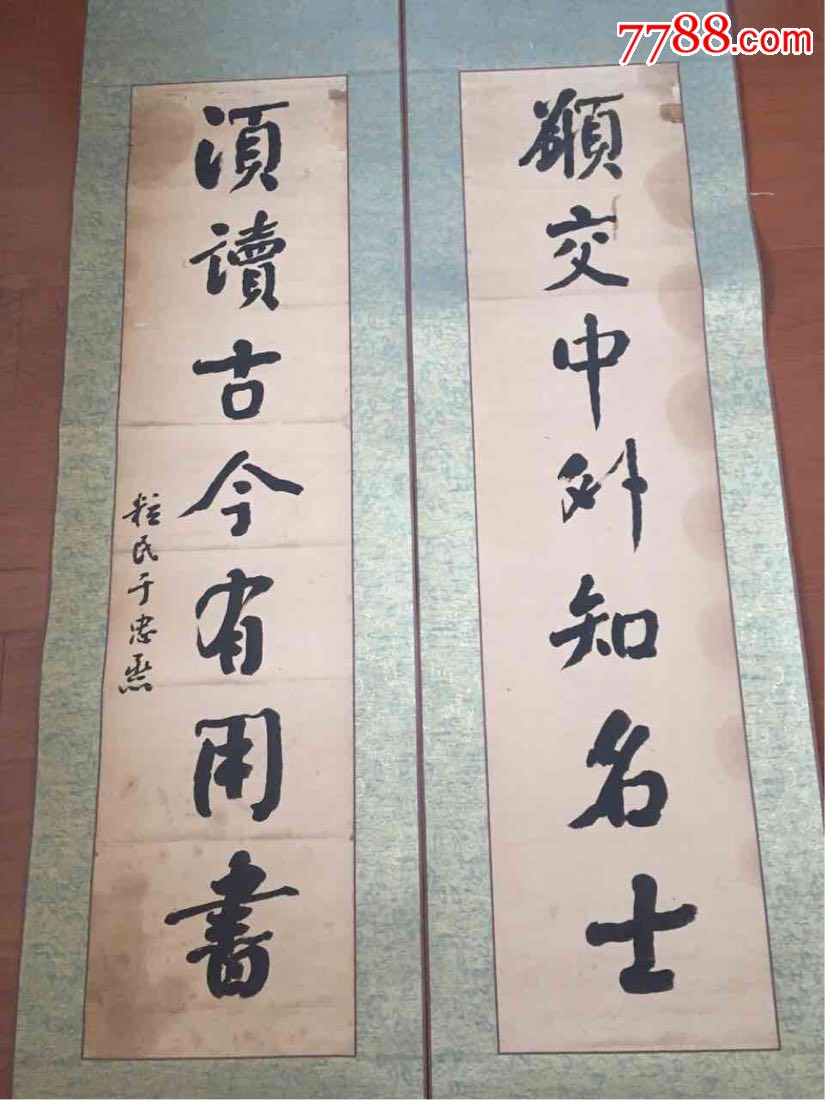 7788.com
願交中外知名士
須讀古今有用書
民于忠